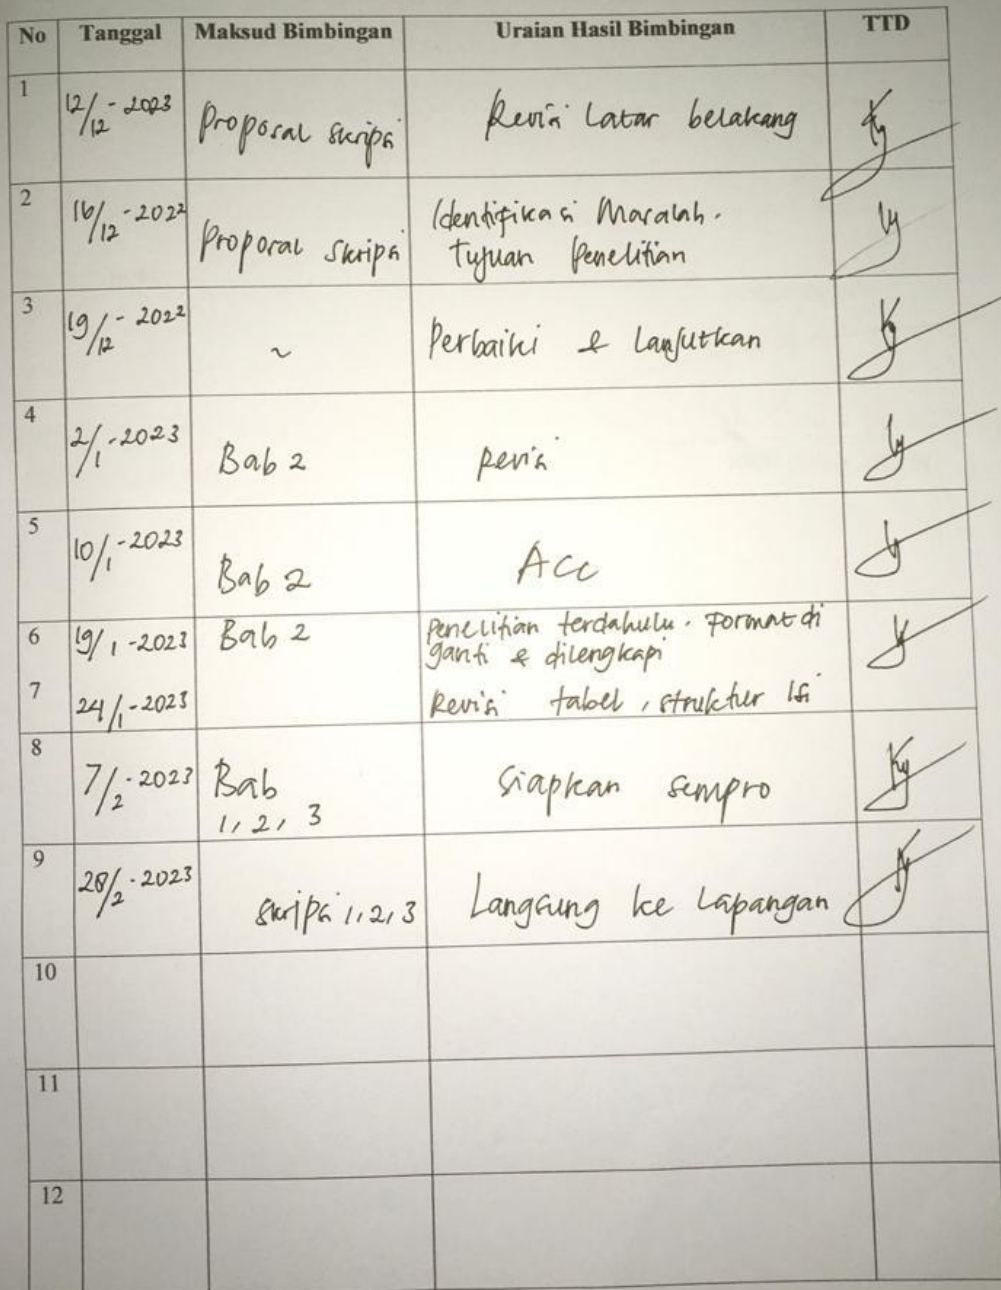 No Tanggal Maksud Bimbingan Uraian Hasil Bimbingan TTD
1 12/12-2023 Proposal skripsi Revisi Latar belakang
2 16/12-2022 Proposal Skripsi Identifikasi Masalah.
Tujuan Penelitian
3 19/12-2022 ~ Perbaiki & Lanjutkan
4 2/1-2023 Bab 2 Revisi
5 10/1-2023 Bab 2 Acc
6 19/1-2023 Bab 2 Penelitian terdahulu. Format di
ganti & dilengkapi
7 24/1-2023 Revisi tabel, struktur isi
8 7/2-2023 Bab Siapkan sempro
1, 2, 3
9 28/2-2023 Skripsi 1, 2, 3 Langsung ke Lapangan
10
11
12